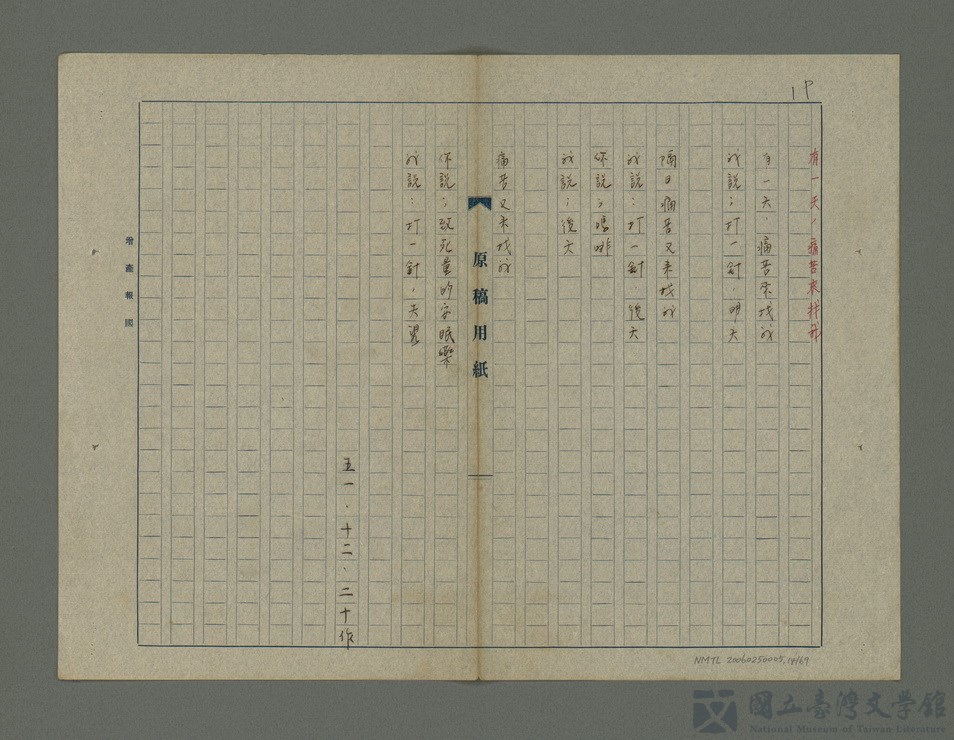 1P
有一天，痛苦來找我
有一天，痛苦來找我
我說：打一針，明天
隔日痛苦又來找我
我說：打一針，後天
你說：嗎啡
我說：後天
痛苦又來找我
你說：致死量的安眠藥
我說：打一針，天堂
五一．十二．二十作
原稿用紙
增產報國
NMTL 20060250005.14/69
國立臺灣文學館
National Museum of Taiwan Literature